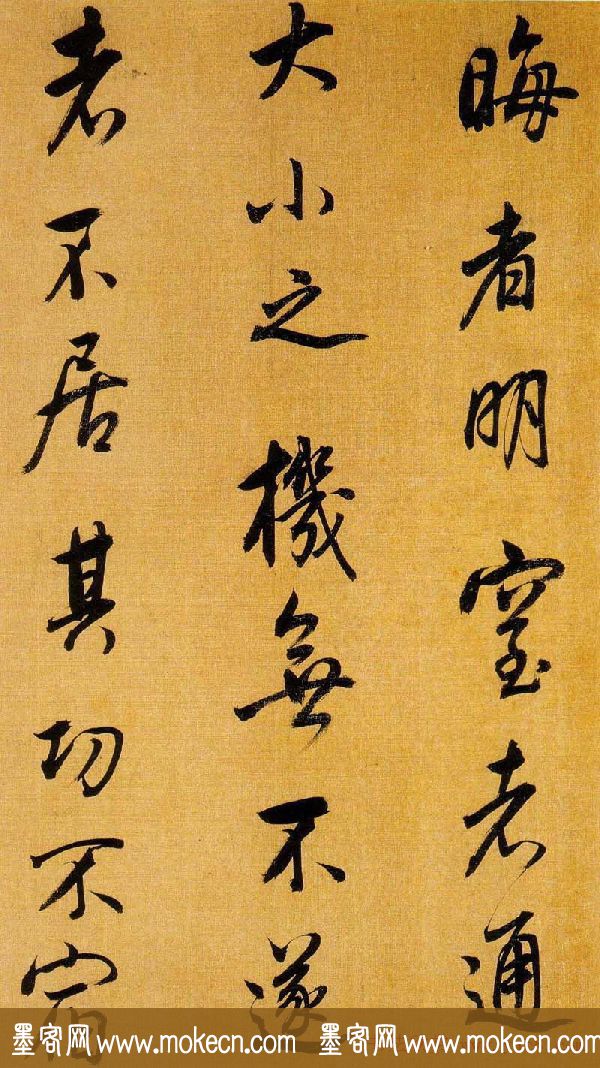 晦者明窒者通
大小之機無不遂
者不居其功不宿
墨客网 www.mokecn.com 墨客网 www.mokecn.com